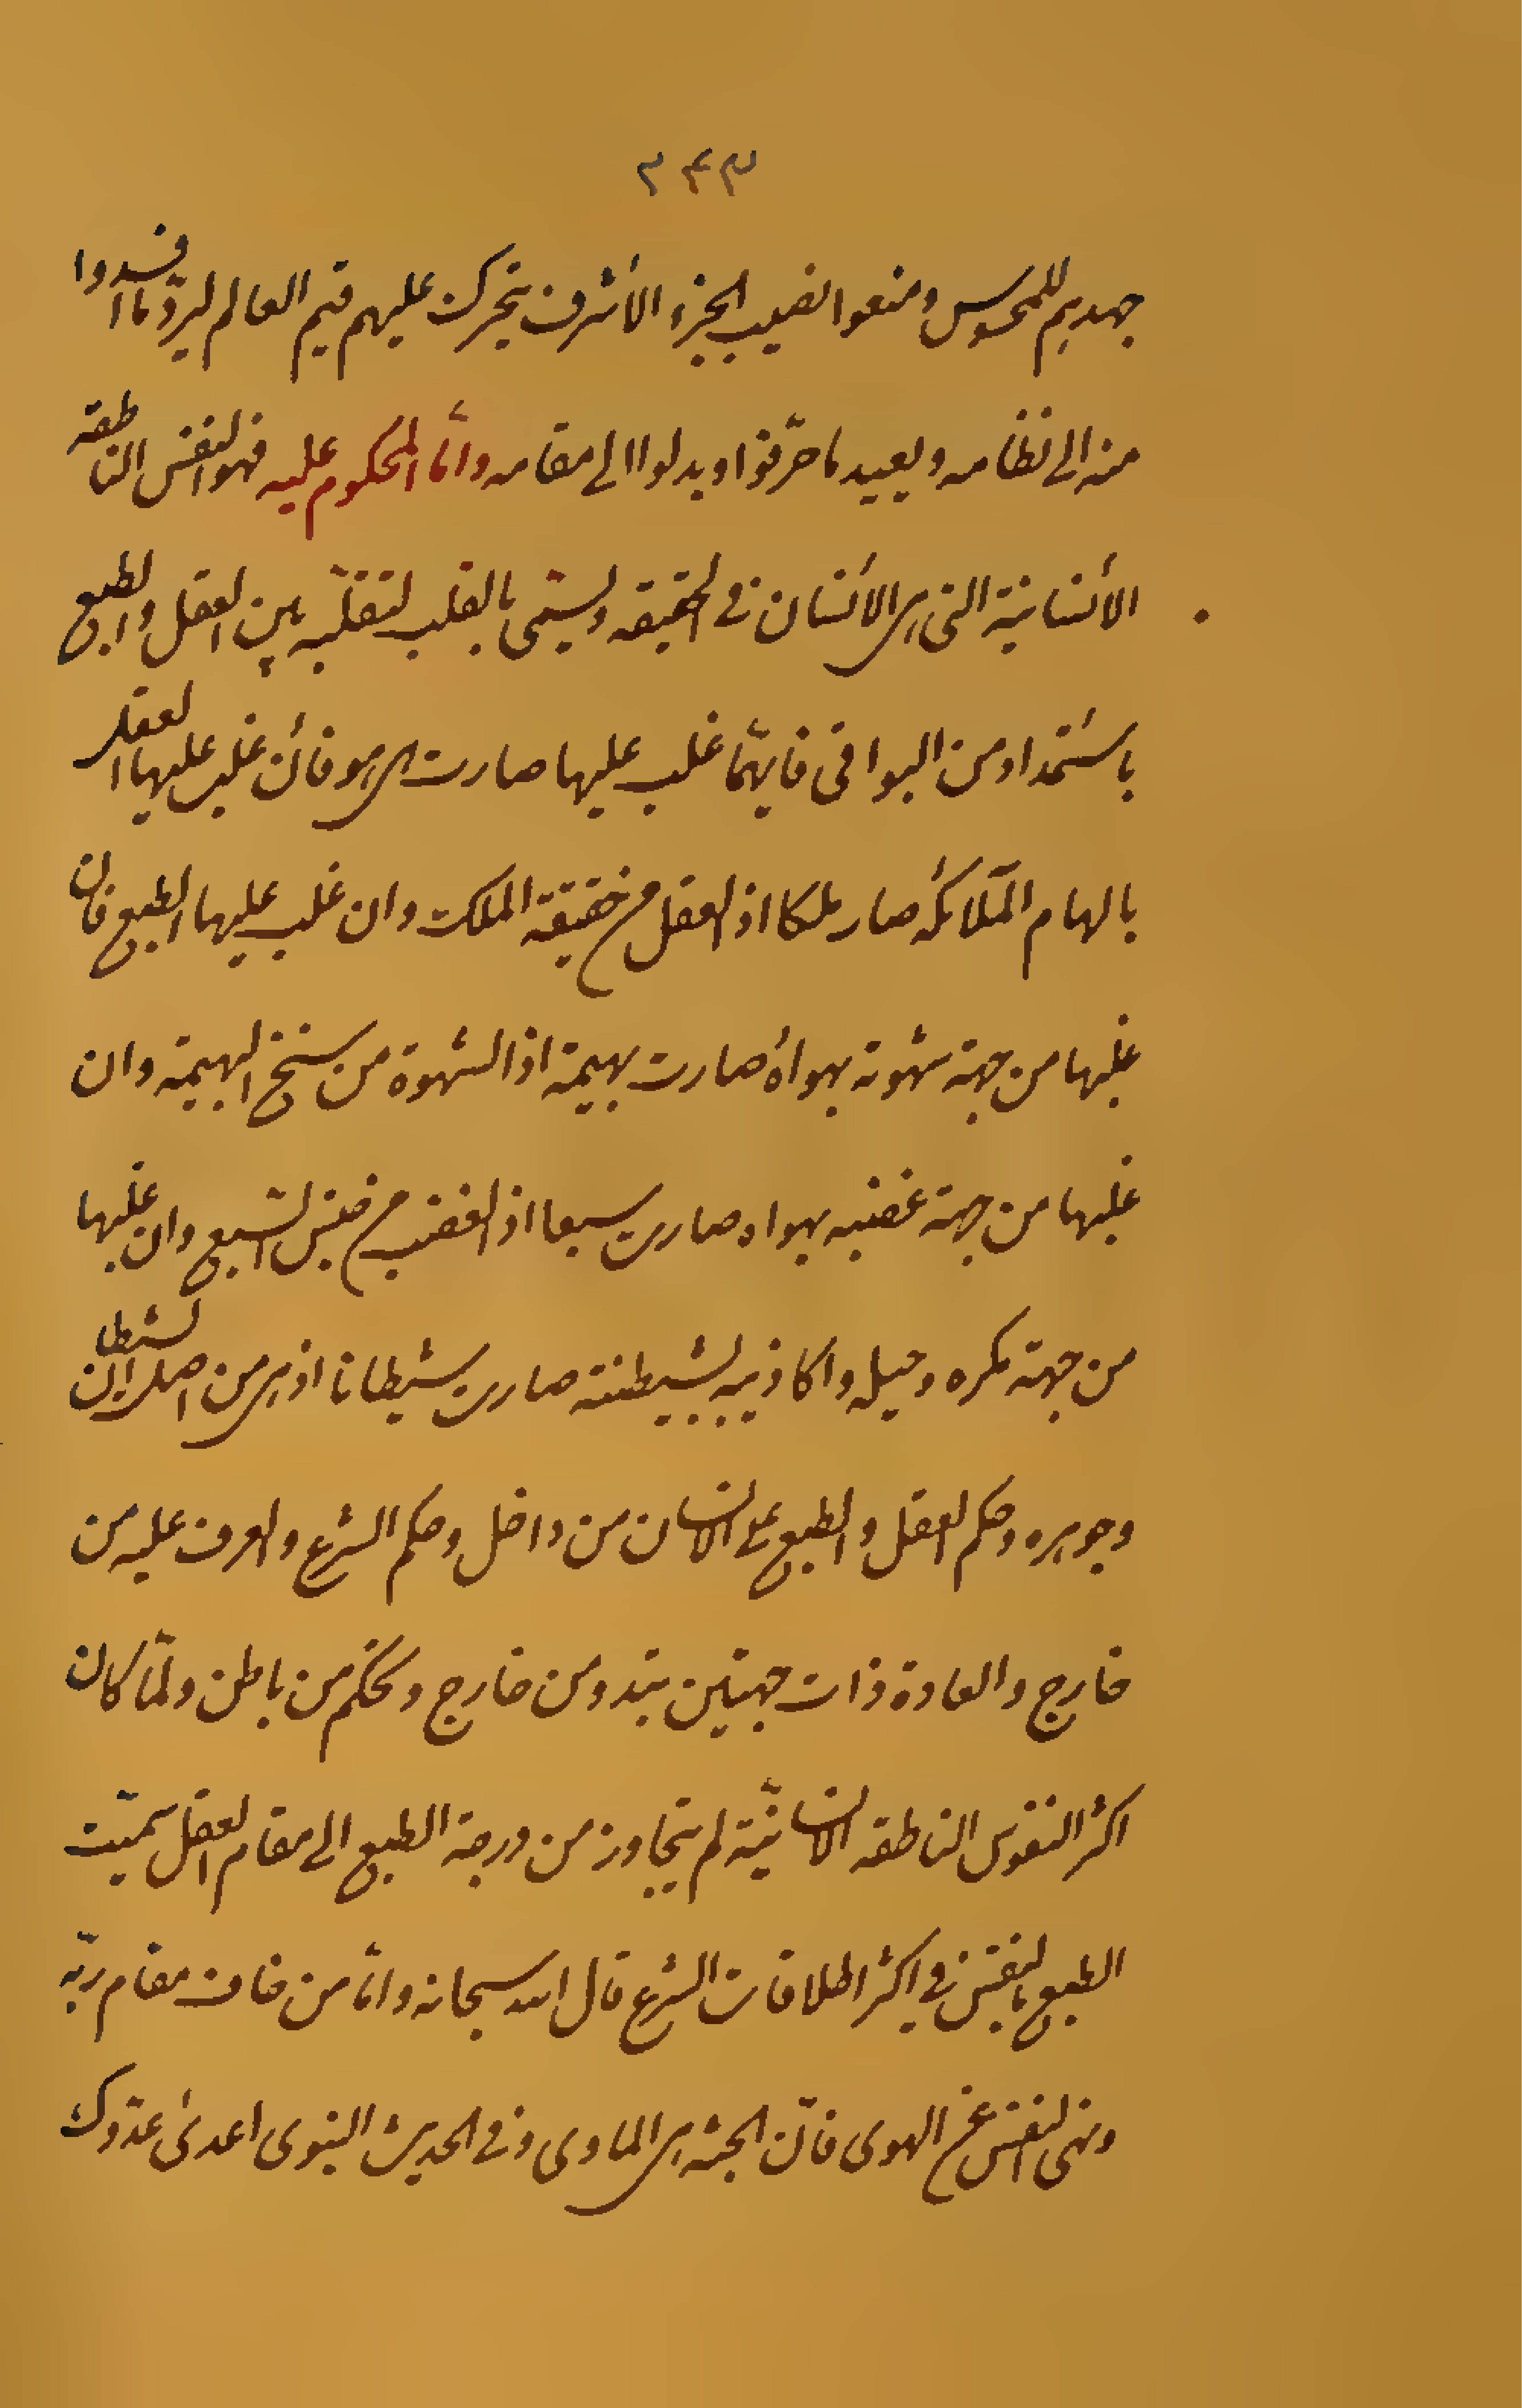 ٣٤٣
جهدهم للمحسوس ومنعوا نصيب الجزء الأشرف يتحرك عليهم قيم العالم ليردّ ما افسدوا
منه الى نظامه ويعيد ما حرّفوا وبدلوا الى مقامه وأمّا المحكوم عليه فهو النفس الناطقه
الأنسانيّة التى هى الأنسان فى الحقيقه ويسمّى بالقلب لتقلّبه بين العقل والطبع
باستمداد من البواقى فايهّما غلب عليها صارت هى هو فأن غلب عليها العقل
بالهام الملائكه صار ملكا اذ العقل من حقيقة الملك وان غلب عليها الطبع فان
غلبها من جهة شهوته بهواه صارت بهيمة اذ الشهوة من سنخ البهيمة وان
غلبها من جهة غضبه بهواه صارت سبعا اذ الغضب من جنس السّبع وان غلبها
من جهة مكره وحيله واكاذيبه بشيطنته صارت شيطانا اذ هى من اصل الشيطان
وجوهره وحكم العقل والطبع على الانسان من داخل وحكم الشرع والعرف عليه من
خارج والعادة ذات جهتين يبتدو من خارج وتحكم من باطن ولمّا كان
اكثر النفوس الناطقه الانسانيّة لم يتجاوز من درجة الطبع الى مقام العقل سمّيت
الطبع بالنفس فى اكثر اطلاقات الشرع قال الله سبحانه وامّا من خاف مقام ربّه
ونهى النفس عن الهوى فانّ الجنّة هى الماوى وفى الحديث النبوى اعدى عدّوك